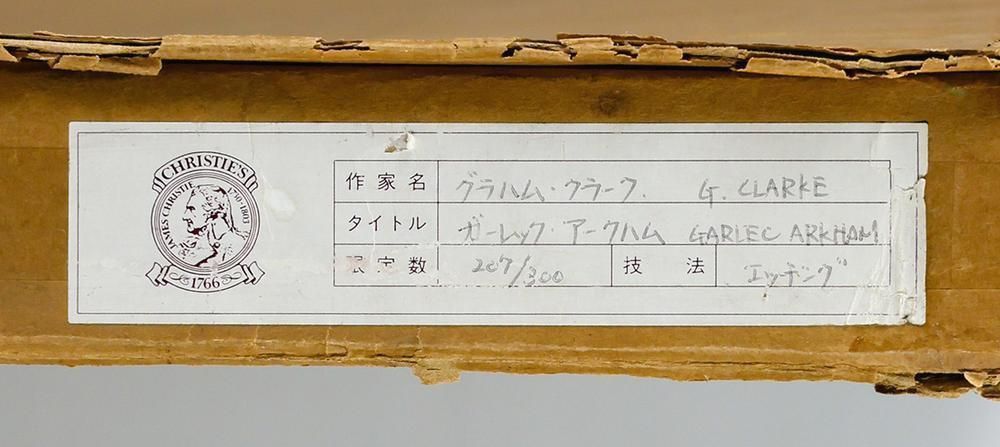 CHRISTIE'S
JAMES CHRISTIE 1730-1803
1766
作家名 グラハム・クラーク. G. CLARKE
タイトル ガーレック・アークハム GARLEC ARKHAM
限定数 207/300 技法 エッチング